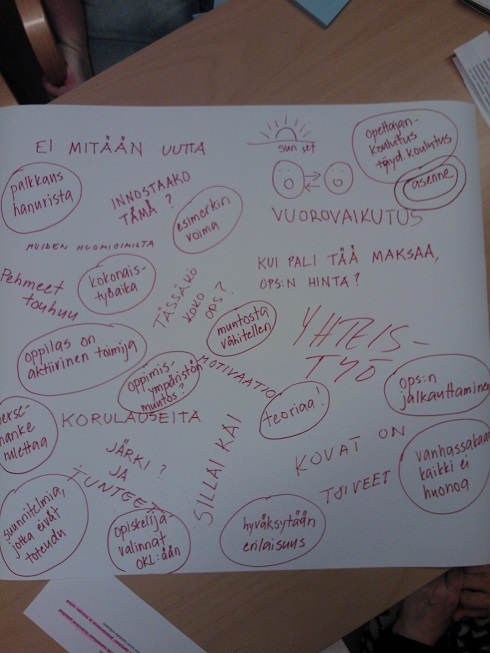 EI MITÄÄN UUTTA
sun set
opettajan-
koulutus
täyd.koulutus
asenne
palkkaus
hanurista
INNOSTAAKO
TÄMÄ?
esimerkin
voima
VUOROVAIKUTUS
MUIDEN HUOMIOIMISTA
Pehmeet
touhuu
kokonais-
työaika
TÄSSÄKÖ
KOKO
OPS?
KUI PALI TÄÄ MAKSAA,
OPS:N HINTA?
muutosta
vähitellen
YHTEIS-
TYÖ
oppilas on
aktiivinen toimija
oppimis-
ympäristön
muutos?
MOTIVAATIO
teoriaa!
ops:n
jalkauttaminen
hanke
rulettaa
KORULAUSEITA
JÄRKI?
JA
TUNTEET
SILLAI KAI
KOVAT ON
TOIVEET
vanhassakaan
kaikki ei
huonoa
suunnitelmia,
jotka eivät
toteudu
opiskelija-
valinnat
OKL:ään
hyväksytään
erilaisuus